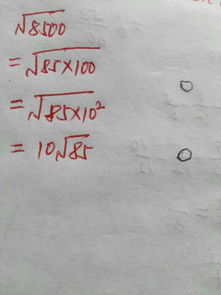 √8500
= √85×100
= √85×10²
= 10√85